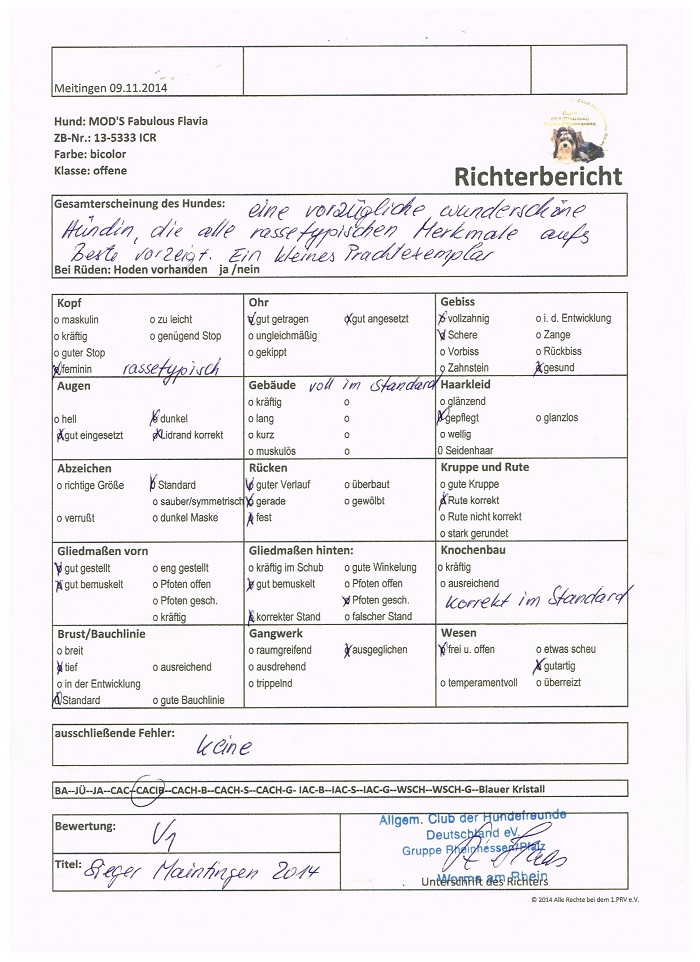 Meitingen 09.11.2014
Hund: MOD'S Fabulous Flavia
ZB-Nr.: 13-5333 ICR
Farbe: bicolor
Klasse: offene
Richterbericht
Gesamterscheinung des Hundes: eine vorzügliche wunderschöne
Hündin, die alle rassetypischen Merkmale aufs
Beste vorzeigt. Ein kleines Prachtexemplar
Bei Rüden: Hoden vorhanden ja /nein
Kopf
o maskulin o zu leicht
o kräftig o genügend Stop
o guter Stop
x feminin rassetypisch
Ohr
x gut getragen x gut angesetzt
o ungleichmäßig
o gekippt
Gebiss
x vollzahnig o i. d. Entwicklung
x Schere o Zange
o Vorbiss o Rückbiss
o Zahnstein x gesund
Augen
o hell x dunkel
x gut eingesetzt x Lidrand korrekt
Gebäude voll im Standard
o kräftig o
o lang o
o kurz o
o muskulös o
Haarkleid
o glänzend
x gepflegt o glanzlos
o wellig
0 Seidenhaar
Abzeichen
o richtige Größe x Standard
o sauber/symmetrisch
o verrußt o dunkel Maske
Rücken
x guter Verlauf o überbaut
x gerade o gewölbt
x fest
Kruppe und Rute
o gute Kruppe
x Rute korrekt
o Rute nicht korrekt
o stark gerundet
Gliedmaßen vorn
x gut gestellt o eng gestellt
x gut bemuskelt o Pfoten offen
o Pfoten gesch.
o kräftig
Gliedmaßen hinten:
o kräftig im Schub o gute Winkelung
x gut bemuskelt o Pfoten offen
x Pfoten gesch.
x korrekter Stand o falscher Stand
Knochenbau
o kräftig
o ausreichend
korrekt im Standard
Brust/Bauchlinie
o breit
x tief o ausreichend
o in der Entwicklung
x Standard o gute Bauchlinie
Gangwerk
o raumgreifend x ausgeglichen
o ausdrehend
o trippelnd
Wesen
x frei u. offen o etwas scheu
x gutartig
o temperamentvoll o überreizt
ausschließende Fehler:
keine
BA--JÜ--JA--CAC--CACIB--CACH-B--CACH-S--CACH-G- IAC-B--IAC-S--IAC-G--WSCH--WSCH-G--Blauer Kristall
Bewertung: V1
Titel: Sieger Maintingen 2014
Allgem. Club der Hundefreunde
Deutschland eV.
Gruppe Rheinhessen/Pfalz
Worms am Rhein
Unterschrift des Richters
© 2014 Alle Rechte bei dem 1.PRV e.V.